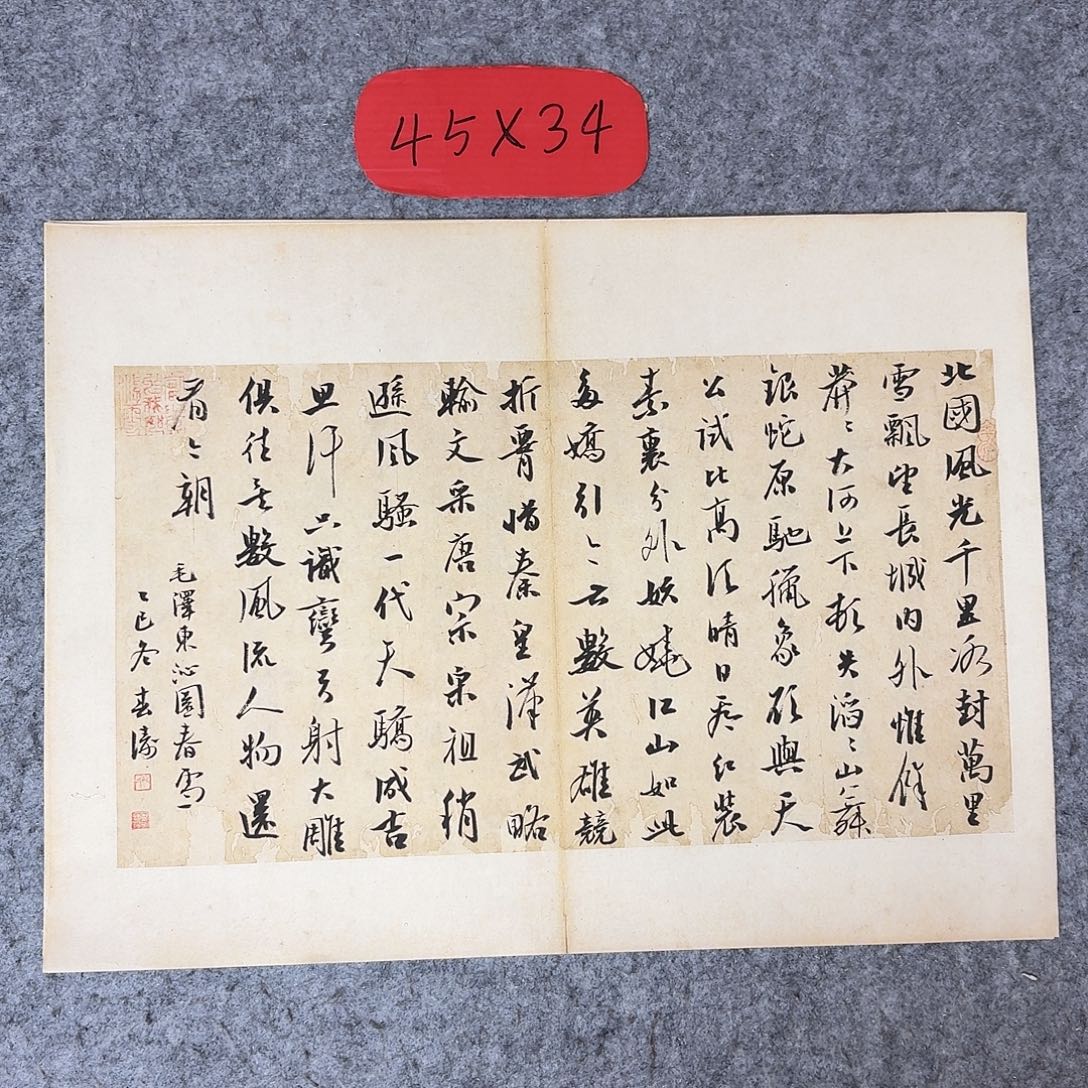 45X34
北國風光千里冰封萬里
雪飄望長城內外惟餘
莽〻大河上下頓失滔〻山舞
銀蛇原馳臘象欲與天
公試比高須晴日看紅裝
素裹分外妖嬈江山如此
多嬌引〻無數英雄競
折腰惜秦皇漢武略
輸文采唐宗宋祖稍
遜風騷一代天驕成吉
思汗只識彎弓射大雕
俱往矣數風流人物還
看今朝
毛澤東沁園春雪
乙巳冬春濤